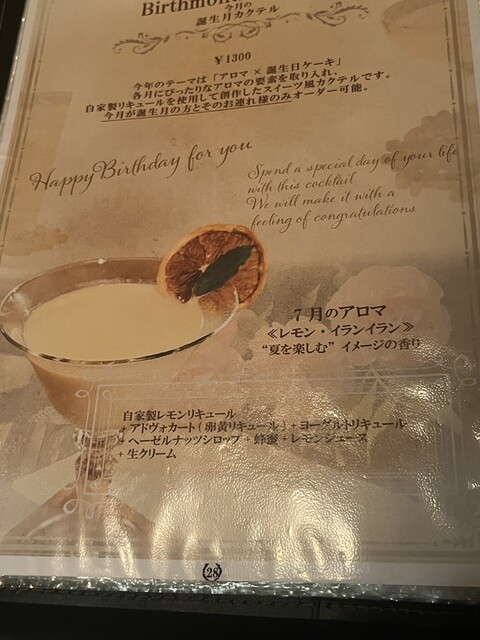 今月の
誕生月カクテル
¥1300
今年のテーマは「アロマ × 誕生日ケーキ」
各月にぴったりなアロマの要素を取り入れ、
自家製リキュールを使用して創作したスイーツ風カクテルです。
今月が誕生月の方とそのお連れ様のみオーダー可能。
Happy Birthday for you
Spend a special day of your life
with this cocktail
We will make it with a
feeling of congratulations
7月のアロマ
≪レモン・イランイラン≫
“夏を楽しむ” イメージの香り
自家製レモンリキュール
+ アドヴォカート(卵黄リキュール) + ヨーグルトリキュール
+ ヘーゼルナッツシロップ + 蜂蜜 + レモンジュース
+ 生クリーム
28